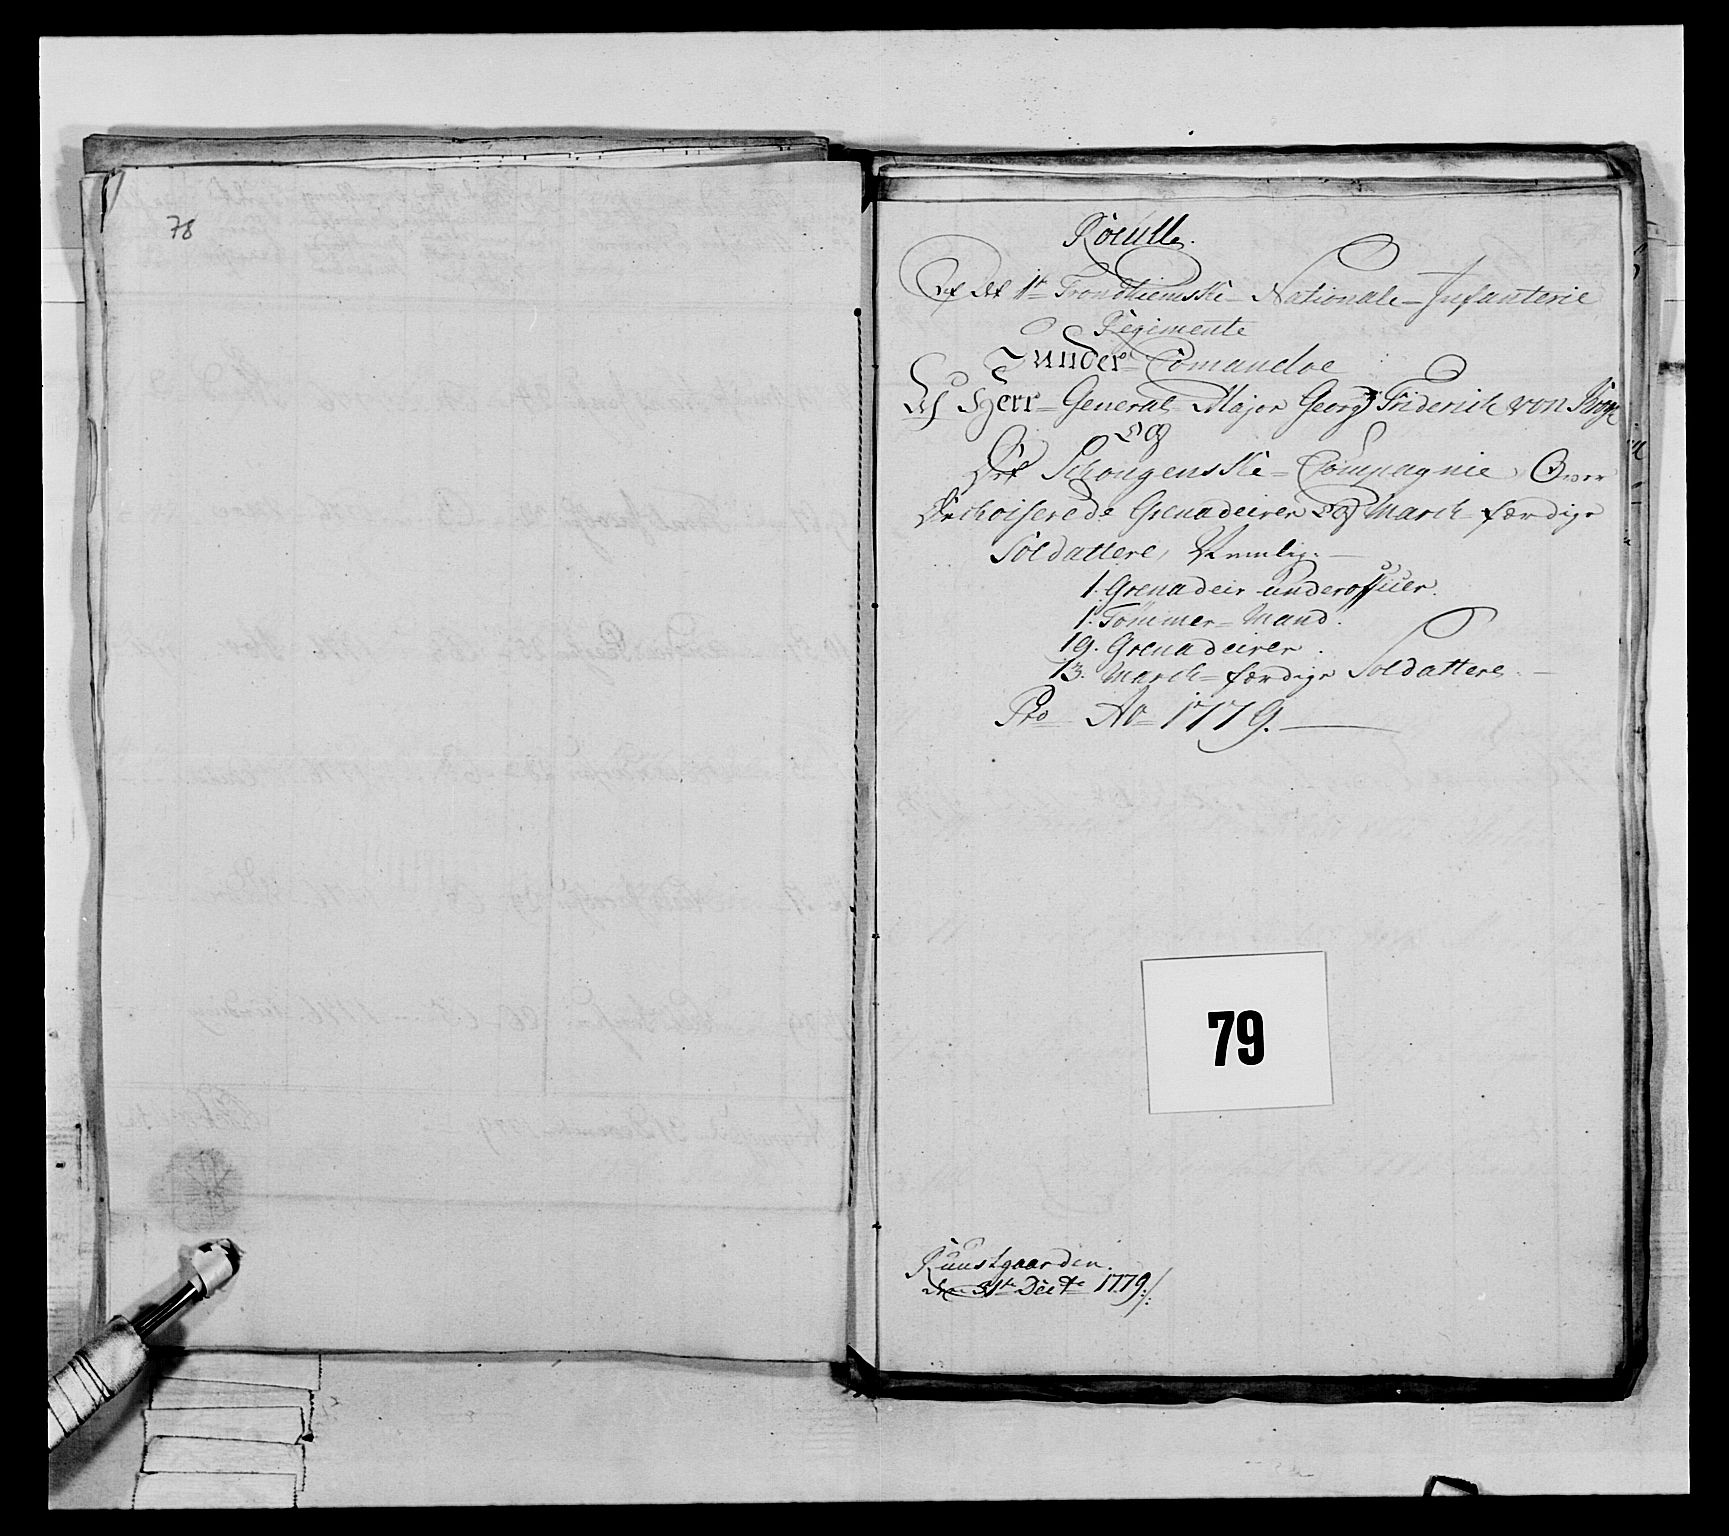 78
Roulle.
Af det 1te Trondhiemske Nationale Infanterie
Regimente
under Comandoe
Af Herr General Major Georg Friderich von Krog
og
Det Schougenske Compagnie, Over
Grenadeirer og March færdige
Soldattere, Nemlig.
1. Grenadeir underofficer.
1. Tømmer Mand.
19. Grenadeirer.
13. March færdige Soldattere.
Pro Ao 1779.
79
Ruustgaarden.
den 31te Decbr 1779